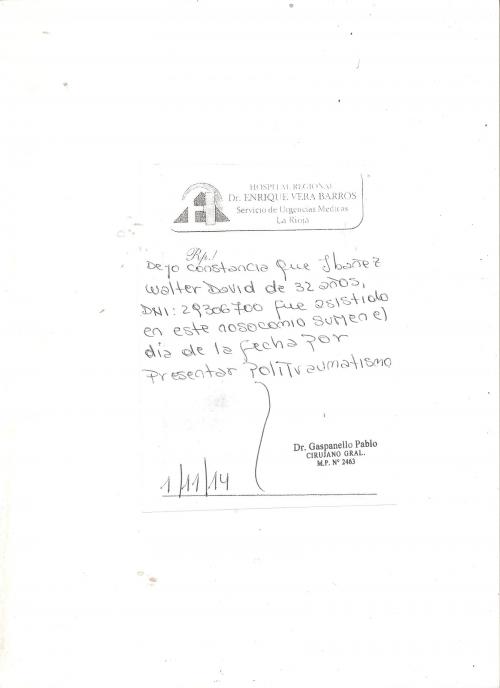 HOSPITAL REGIONAL
Dr. ENRIQUE VERA BARROS
Servicio de Urgencias Medicas
La Rioja
Rp./
Dejo constancia que Ibañez
Walter David de 32 años,
DNI: 29306700 fue asistido
en este nosocomio SUMen el
día de la fecha por
Presentar PoliTraumatismo
Dr. Gaspanello Pablo
CIRUJANO GRAL.
M.P. Nº 2463
1/11/14